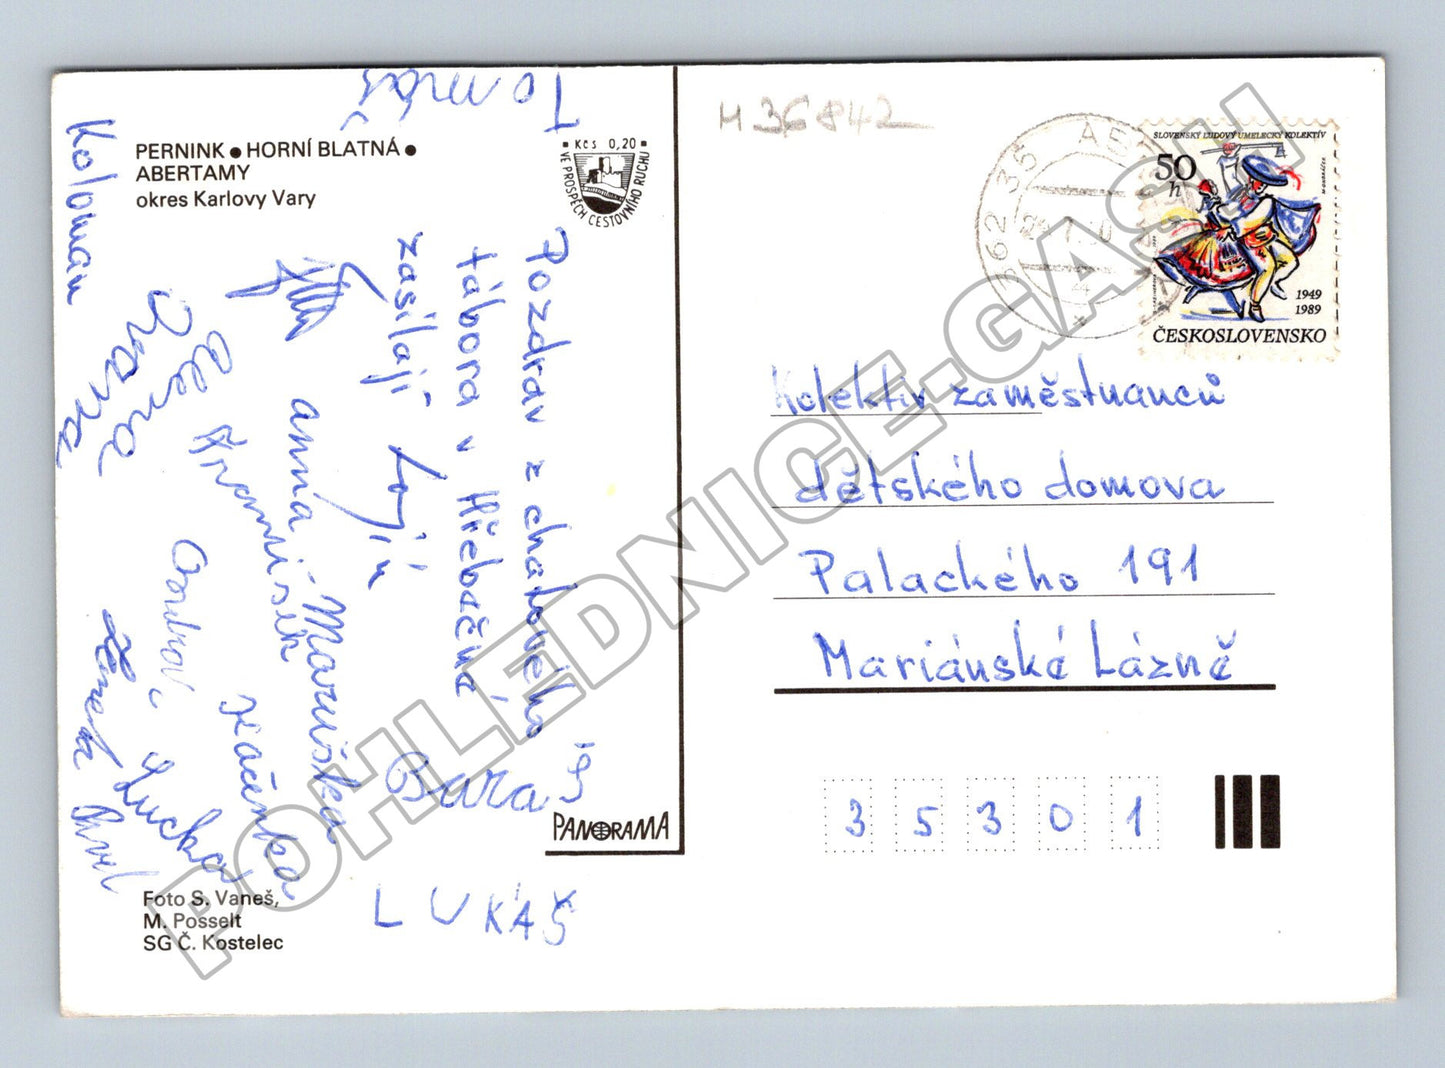 PERNINK ● HORNÍ BLATNÁ ●
ABERTAMY
okres Karlovy Vary
Kčs 0,20
VE PROSPĚCH CESTOVNÍHO RUCHU
Pozdrav z chatového
tábora v Hřebečné
zasílají
Tomáš
Koloman
Ivana
Alena
Anna
Maruška
Kačenka
Lucka
Zdeněk
Pavel
Bára
LUKÁŠ
PANORAMA
Foto S. Vaneš,
M. Posselt
SG Č. Kostelec
M 36842
362 35
SLOVENSKÝ ĽUDOVÝ UMELECKÝ KOLEKTÍV
50
h
1949
1989
ČESKOSLOVENSKO
Kolektiv zaměstnanců
dětského domova
Palackého 191
Mariánské Lázně
35301
POHLEDNICE.GASH